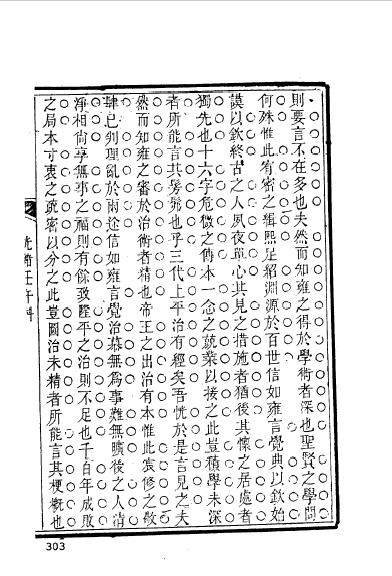 則要言不在多也夫然而知雍之得於學術者深也聖賢之學問
何殊惟此宥密之緝熙足紹淵源於百世信如雍言覺典以欽始
謨以欽終古之人夙夜單心其見之措施者猶後其懷之居處者
獨先也十六字危微之傳本一念之兢業以接之此豈積學未深
者所能言其髣髴也乎三代上平治有經矣吾恍於是言見之夫
然而知雍之審於治術者精也帝王之出治有本惟此寅修之敬
肆已判理亂於兩途信如雍言覺治恭無為事難無曠後之人清
淨相尙享無事之福則有餘致隆平之治則不足也千百年成敗
之局本寸衷之疏密以分之此豈圖治未精者所能言其梗槪也
光緒壬午科
303